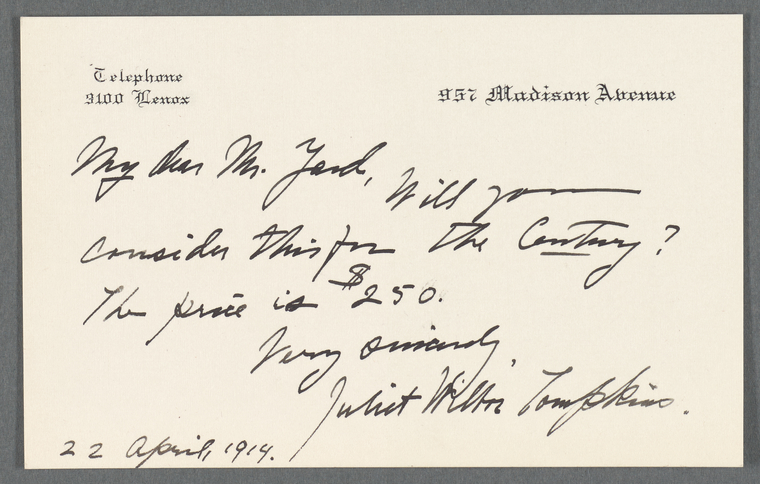 Telephone
3100 Lenox
957 Madison Avenue
My dear Mr. Yard,
Will you
consider this for the Century?
The price is $250.
Very sincerely,
Juliet Wilbor Tompkins.
22 April, 1914.